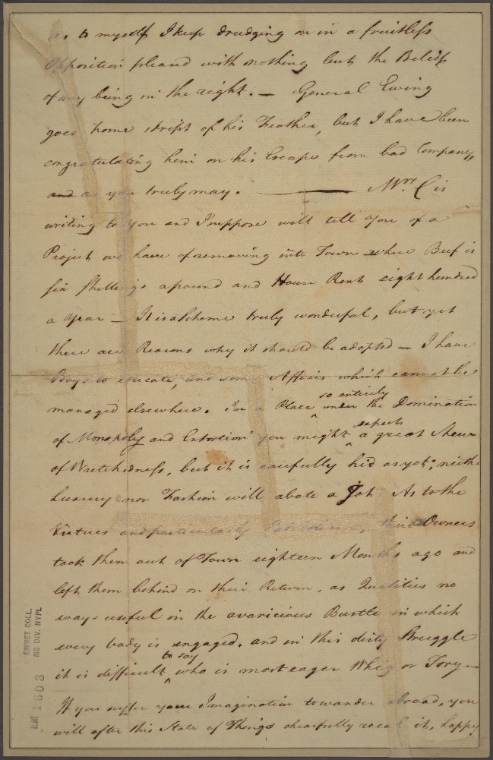 as to myself I keep drudging on in a fruitless
opposition pleased with nothing but the Belief
of my being in the right. — General Ewing
goes home stript of his Feather, but I have been
congratulating him on his Escape from bad Company,
and as you truly may. — Mrs. C is
writing to you and I suppose will tell you of a
Project we have of removing into Town where Beef is
six Shillings a pound and House Rent eight hundred
a year — It is a Scheme truly wonderful, but yet
there are Reasons why it should be adopted — I have
Boys to educate, and some Affairs which cannot be
managed elsewhere. In a Place so entirely under the Domination
of Monopoly and Extortion you might expect a great Shew
of Wretchedness, but it is carefully hid as yet; neither
Luxury nor Fashion will abate a Jot. As to the
Virtues and particularly their Owners
took them out of Town eighteen Months ago and
left them behind on their Return, as Qualities no
ways useful in the avaricious Bustle in which
every body is engaged. and in this dirty Struggle
it is difficult to say who is most eager Whig or Tory —
If you suffer your Imagination to wander abroad, you
will after this State of Things chearfully recal it, happy
EMMET COLL.
MS DIV. NYPL
EM 1603